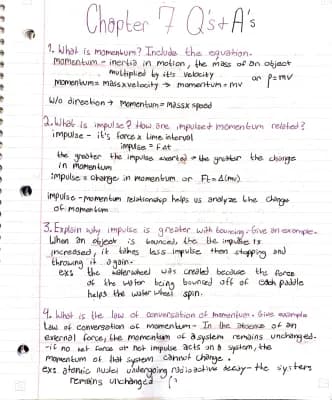 Chapter 7 Q's & A's
1. What is momentum? Include the equation.
Momentum - inertia in motion, the mass of an object
multiplied by it's velocity or p=mv
momentum = mass x velocity → momentum = mv
W/o direction → Momentum = mass x speed
2. What is impulse? How are impulse + momentum related?
impulse - it's force x time interval
impulse = F∆t
the greater the impulse exerted → the greater the change
in momentum
Impulse = change in momentum or Ft = ∆(mv)
impulse - momentum relationship helps us analyze the change
of momentum
3. Explain why impulse is greater with bouncing. Give an example.
When an object is bounced, the the impulse is
increased, it takes less impulse then stopping and
throwing it again.
exs the waterwheel was created because the force
of the water being bounced off of each paddle
helps the water wheel spin.
4. What is the law of conversation of momentum. Give example
Law of conversation of momentum - In the absence of an
external force, the momentum of a system remains unchanged.
- if no net force or net impulse acts on a system, the
momentum of that system cannot change.
exs atomic nuclei undergoing radioactive decay - the system
remains unchanged